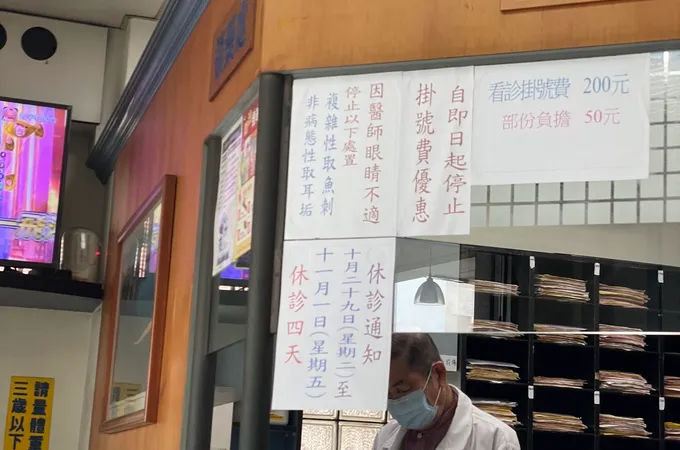 因醫師眼睛不適
停止以下處置
複雜性取魚刺
非病態性取耳垢
自即日起停止
掛號費優惠
看診掛號費 200元
部份負擔 50元
休診通知
十月二十九日(星期二)至
十一月一日(星期五)
休診四天
請量體重
三歲以下